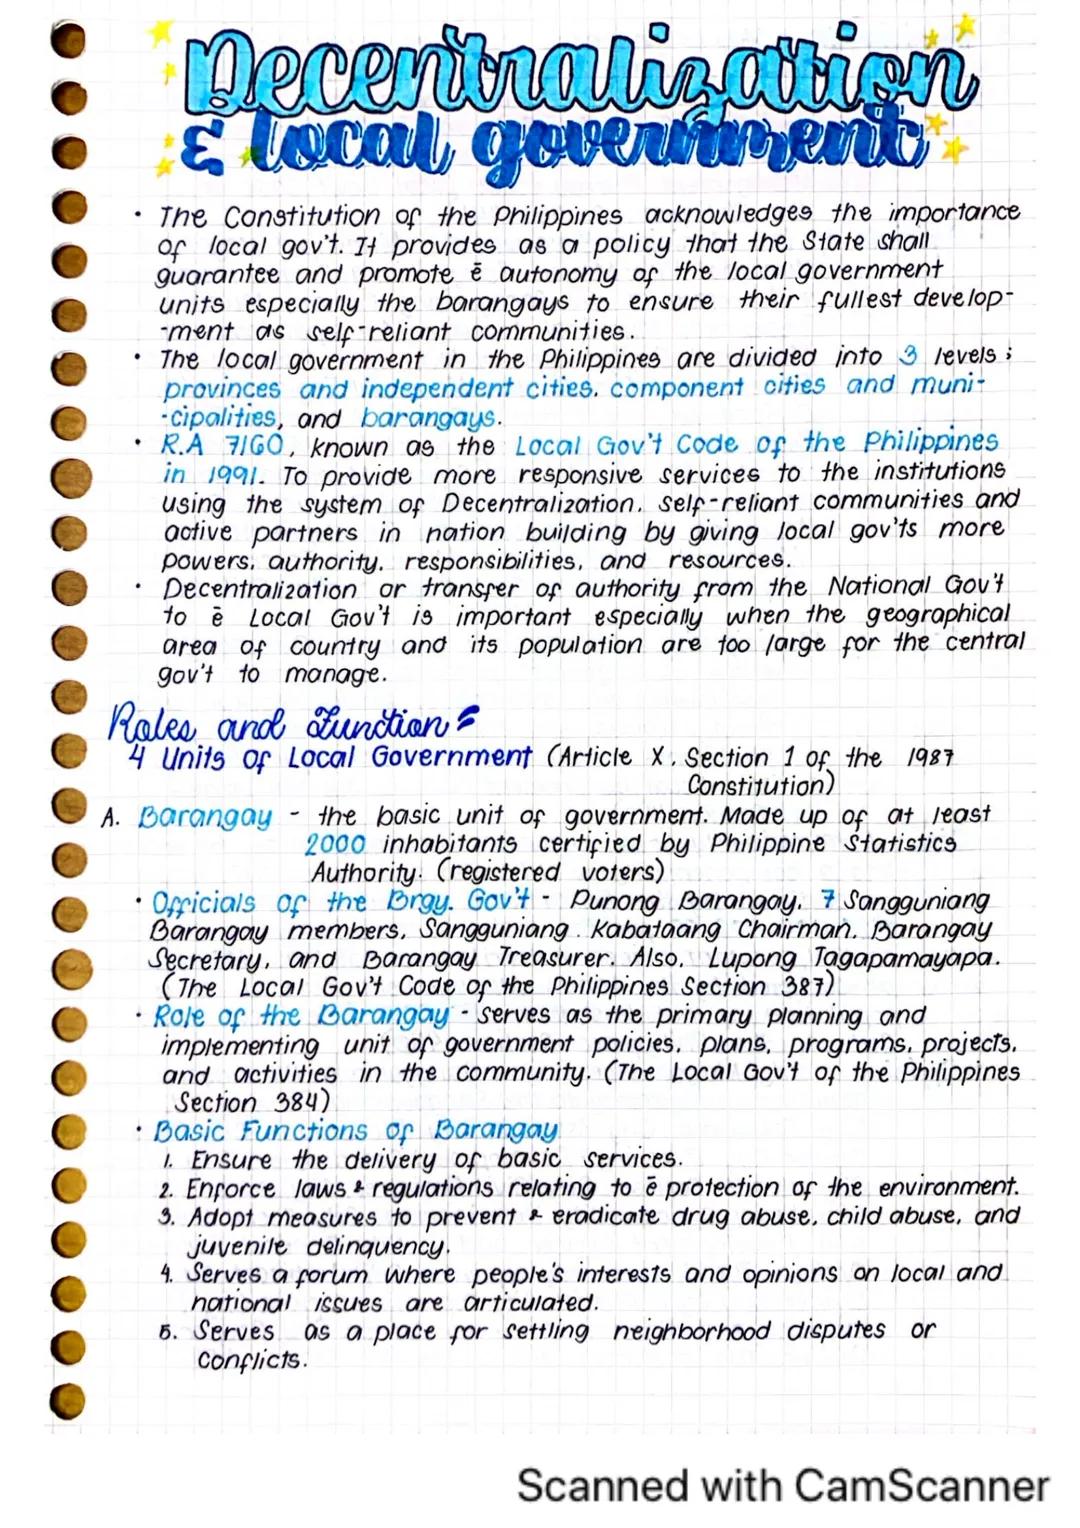 Decentralization
& local government
• The Constitution of the Philippines acknowledges the importance
of local gov't. It provides as a policy that the State shall
guarantee and promote ē autonomy of the local government
units especially the barangays to ensure their fullest develop-
-ment as self-reliant communities.
• The local government in the Philippines are divided into 3 levels ;
provinces and independent cities, component cities and muni-
-cipalities, and barangays.
• R.A 7160, known as the Local Gov't Code of the Philippines
in 1991. To provide more responsive services to the institutions
using the system of Decentralization, self-reliant communities and
active partners in nation building by giving local gov'ts more
powers, authority, responsibilities, and resources.
• Decentralization or transfer of authority from the National Gov't
to ē Local Gov't is important especially when the geographical
area of country and its population are too large for the central
gov't to manage.
Roles and Function =
4 Units of Local Government (Article X, Section 1 of the 1987
Constitution)
A. Barangay - the basic unit of government. Made up of at least
2000 inhabitants certified by Philippine Statistics
Authority. (registered voters)
• Officials of the Brgy. Gov't - Punong Barangay, 7 Sangguniang
Barangay members, Sangguniang Kabataang Chairman, Barangay
Secretary, and Barangay Treasurer. Also, Lupong Tagapamayapa.
(The Local Gov't Code of the Philippines Section 387)
• Role of the Barangay - serves as the primary planning and
implementing unit of government policies, plans, programs, projects,
and activities in the community. (The Local Gov't of the Philippines
Section 384)
• Basic Functions of Barangay
1. Ensure the delivery of basic services.
2. Enforce laws & regulations relating to ē protection of the environment.
3. Adopt measures to prevent & eradicate drug abuse, child abuse, and
juvenile delinquency.
4. Serves a forum where people's interests and opinions on local and
national issues are articulated.
5. Serves as a place for settling neighborhood disputes or
conflicts.
Scanned with CamScanner